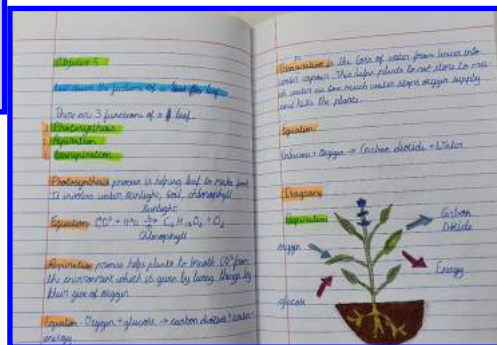 Objective 5
List down the functions of a leaf
There are 3 functions of a leaf.
1 Photosynthesis
Respiration
Transpiration
Photosynthesis process is helping leaf to make food
It involves water, sunlight, soil, chlorophyll
sunlight
Equation
Chlorophyll
Respiration process helps plants to breath CO² from
the environment which is given by living things by
their give of oxygen
Equation - Oxygen + glucose → carbon dioxide + water +
energy.
Transpiration is the loss of water from leaves into
water vapour. This helps plants to not store to much
water as too much water stops oxygen supply
and kills the plants.
Equation:
Glucose + Oxygen → Carbon dioxide + Water
Diagrams
Respiration
Carbon
Dioxide
oxygen
Energy
glucose